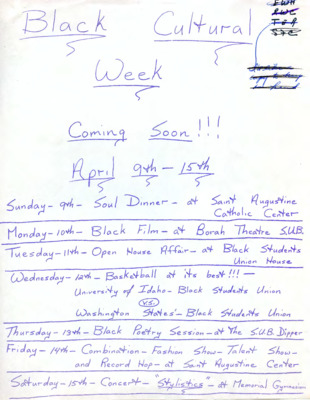 Black Cultural
Week
Coming Soon!!!
April 9th - 15th
Sunday - 9th - Soul Dinner - at Saint Augustine
Catholic Center
Monday - 10th - Black Film - at Borah Theatre S.U.B.
Tuesday - 11th - Open House Affair - at Black Students
Union House
Wednesday - 12th - Basketball at its best!!! -
University of Idaho - Black Students Union
VS.
Washington States' - Black Students Union
Thursday - 13th - Black Poetry Session - at The S.U.B. Dipper
Friday - 14th - Combination - Fashion Show - Talent Show -
and Record Hop - at Saint Augustine Center
Saturday - 15th - Concert - "Stylistics" - at Memorial Gymnasium